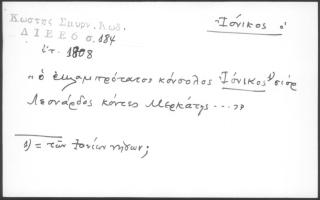 Ἰόνικος ὁ
Κωστῆς Σμυρν. Κωδ.
ΔΙΕΕ 6 σ. 184
ἔτ. 1808
"ὁ ἐκλαμπρότατος κόνσολος Ἰόνικος¹⁾ σιὸρ
Λεονάρδος κόντες Μερκάτης ...."
1) = τῶν Ἰονίων νήσων;